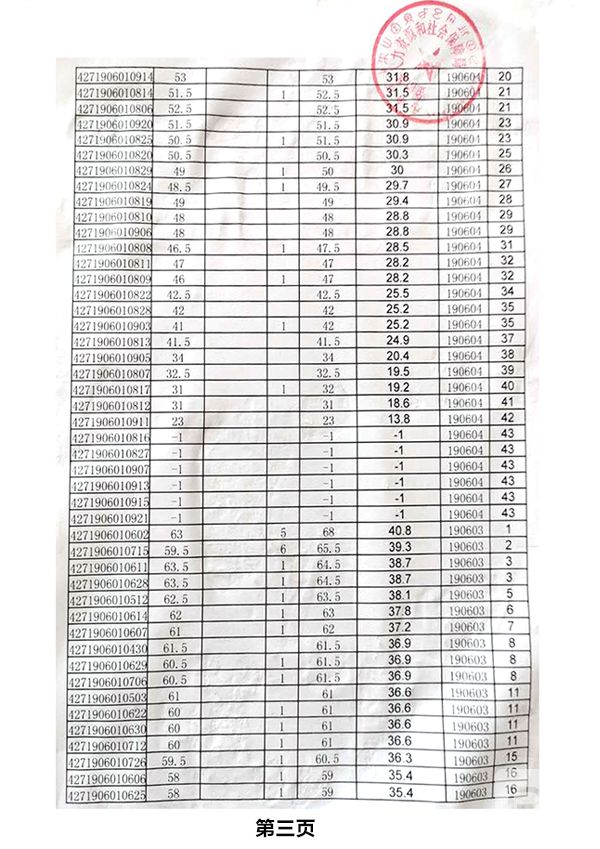 力资源和社会保障
4271906010914 53 53 31.8 190604 20
4271906010814 51.5 1 52.5 31.5 190604 21
4271906010806 52.5 52.5 31.5 190604 21
4271906010920 51.5 51.5 30.9 190604 23
4271906010825 50.5 1 51.5 30.9 190604 23
4271906010820 50.5 50.5 30.3 190604 25
4271906010829 49 1 50 30 190604 26
4271906010824 48.5 1 49.5 29.7 190604 27
4271906010819 49 49 29.4 190604 28
4271906010810 48 48 28.8 190604 29
4271906010906 48 48 28.8 190604 29
4271906010808 46.5 1 47.5 28.5 190604 31
4271906010811 47 47 28.2 190604 32
4271906010809 46 1 47 28.2 190604 32
4271906010822 42.5 42.5 25.5 190604 34
4271906010828 42 42 25.2 190604 35
4271906010903 41 1 42 25.2 190604 35
4271906010813 41.5 41.5 24.9 190604 37
4271906010905 34 34 20.4 190604 38
4271906010807 32.5 32.5 19.5 190604 39
4271906010817 31 1 32 19.2 190604 40
4271906010812 31 31 18.6 190604 41
4271906010911 23 23 13.8 190604 42
4271906010816 -1 -1 -1 190604 43
4271906010827 -1 -1 -1 190604 43
4271906010907 -1 -1 -1 190604 43
4271906010913 -1 -1 -1 190604 43
4271906010915 -1 -1 -1 190604 43
4271906010921 -1 -1 -1 190604 43
4271906010602 63 5 68 40.8 190603 1
4271906010715 59.5 6 65.5 39.3 190603 2
4271906010611 63.5 1 64.5 38.7 190603 3
4271906010628 63.5 1 64.5 38.7 190603 3
4271906010512 62.5 1 63.5 38.1 190603 5
4271906010614 62 1 63 37.8 190603 6
4271906010607 61 1 62 37.2 190603 7
4271906010430 61.5 61.5 36.9 190603 8
4271906010629 60.5 1 61.5 36.9 190603 8
4271906010706 60.5 1 61.5 36.9 190603 8
4271906010503 61 61 36.6 190603 11
4271906010622 60 1 61 36.6 190603 11
4271906010630 60 1 61 36.6 190603 11
4271906010712 60 1 61 36.6 190603 11
4271906010726 59.5 1 60.5 36.3 190603 15
4271906010606 58 1 59 35.4 190603 16
4271906010625 58 1 59 35.4 190603 16
第三页